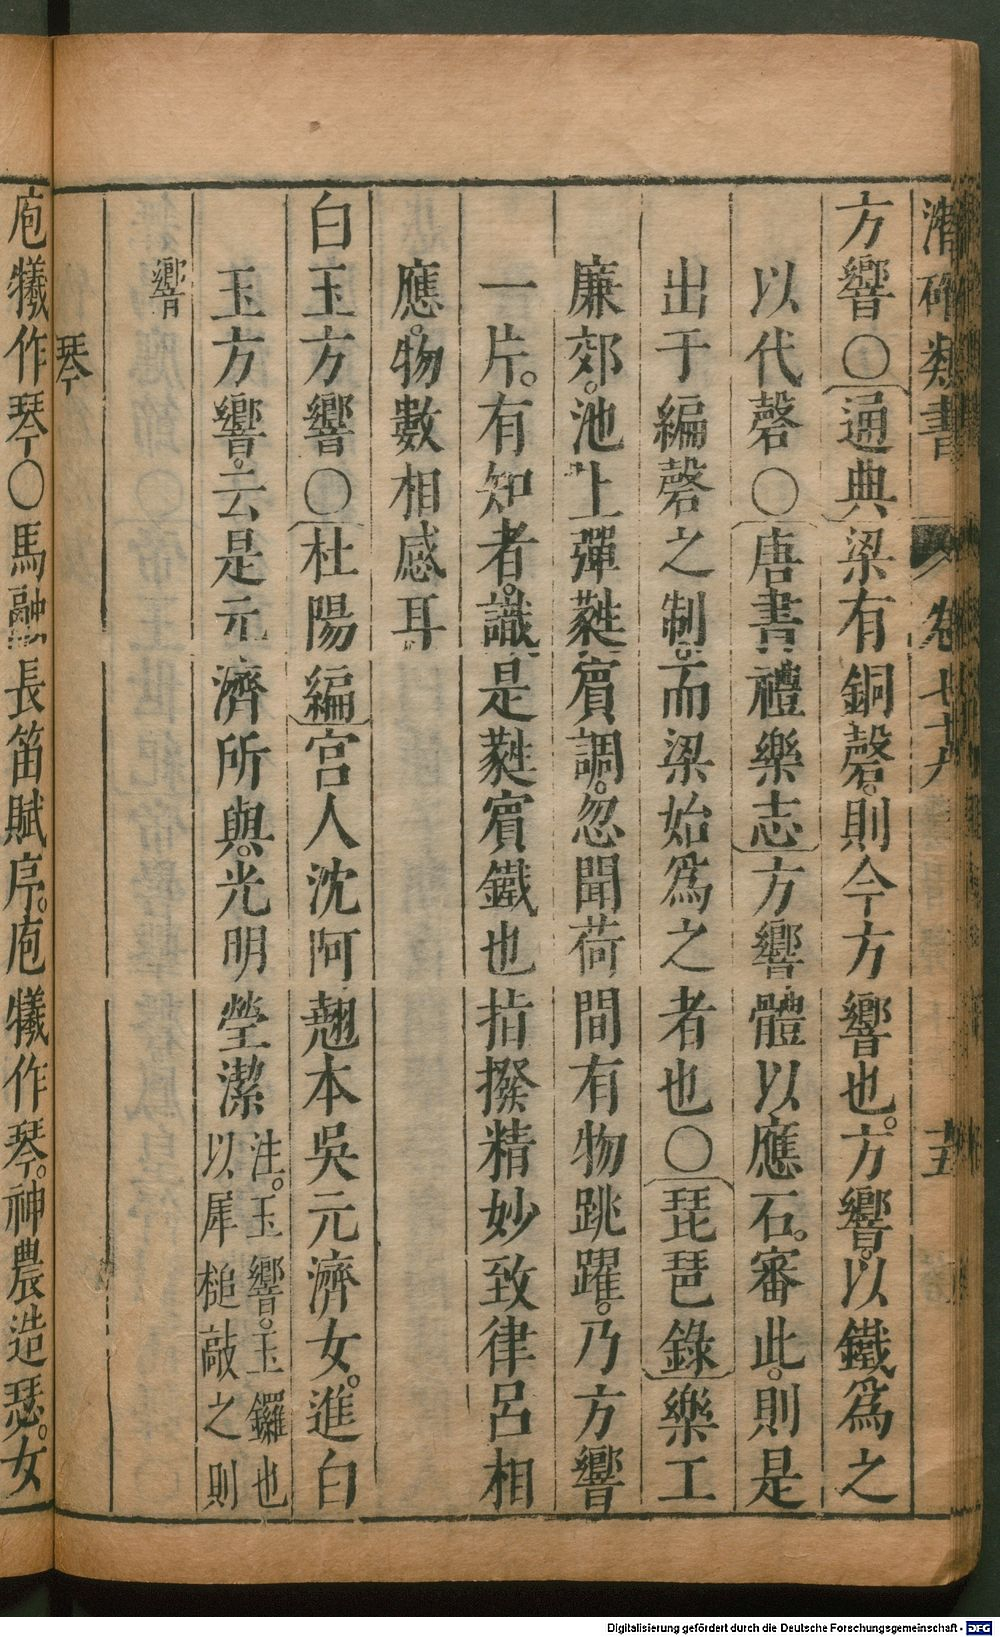 潛確類書 卷七十九 十五
方響〇通典梁有銅磬。則今方響也。方響。以鐵爲之
以代磬〇唐書禮樂志方響體以應石。審此。則是
出于編磬之制。而梁始爲之者也〇琵琶錄樂工
廉郊。池上彈蕤賓調。忽聞荷間有物跳躍。乃方響
一片。有知者。識是蕤賓鐵也指撥精妙致律呂相
應。物數相感耳
白玉方響〇杜陽編宮人沈阿翹本吳元濟女。進白
玉方響。云是元濟所與。光明瑩潔注。玉響。玉鑼也以犀槌敲之則
響
琴
庖犧作琴〇馬融長笛賦序。庖犧作琴。神農造瑟。女
Digitalisierung gefördert durch die Deutsche Forschungsgemeinschaft - DFG